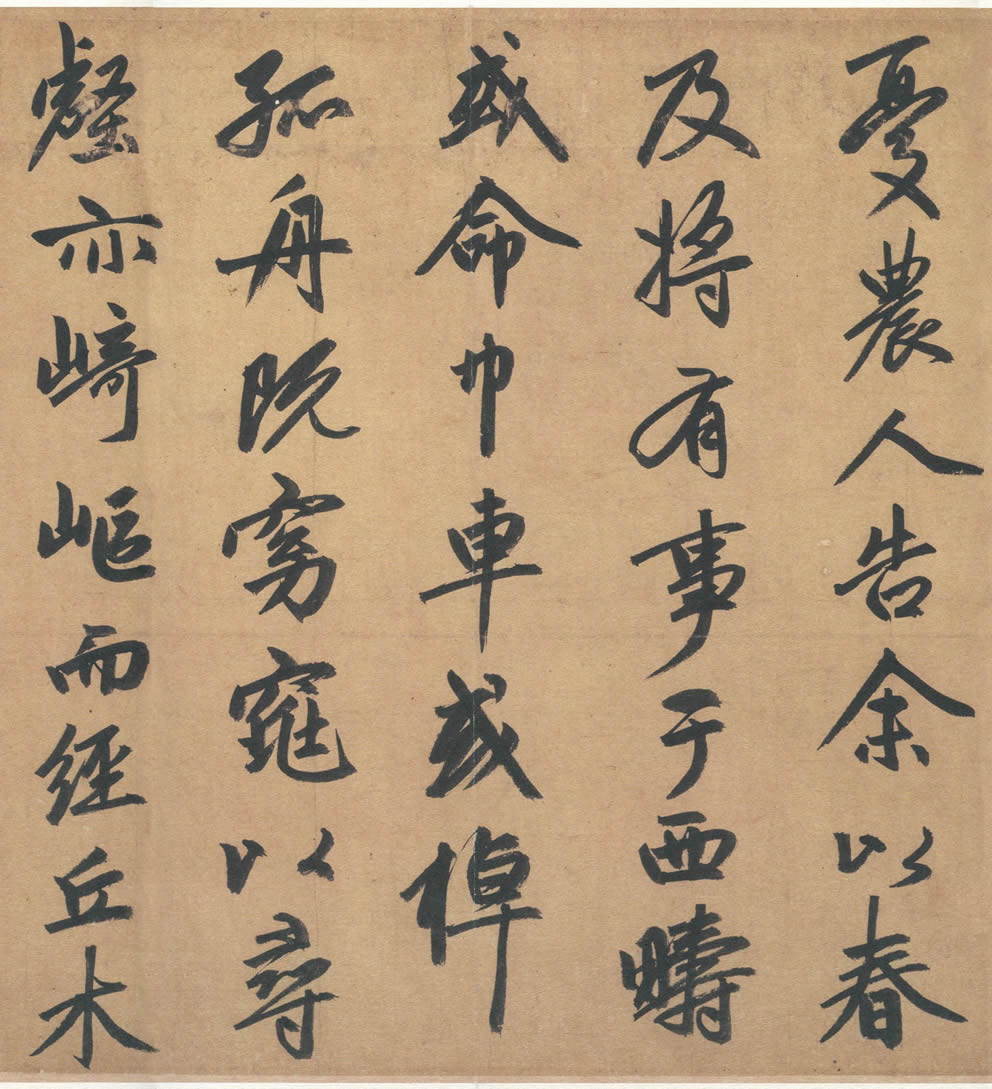 憂農人告余以春
及將有事于西疇
或命巾車或棹
孤舟既窈窕以尋
壑亦崎嶇而經丘木